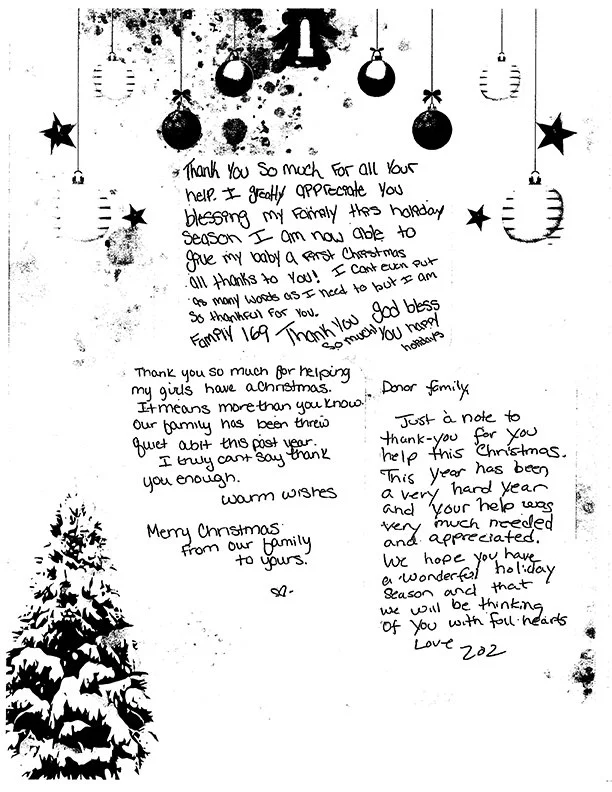 Thank You So much For all Your
help. I greatly appreciate You
blessing my Family this holiday
season I am now able to
give my baby a First Christmas
all thanks to You! I Cant even put
as many words as I need to but I am
So thankful For You.
Family 169 Thank You So much! god bless You happy holidays
Thank you so much for helping
my girls have a christmas.
It means more than you know.
Our family has been threw
quiet abit this past year.
I truly cant say thank
you enough.
Warm wishes
Merry Christmas
From our family
to yours.
Donor family,
Just a note to
thank-you for you
help this Christmas.
This year has been
a very hard year
and your help was
very much needed
and appreciated.
We hope you have
a wonderful holiday
Season and that
we will be thinking
of you with full hearts
Love 202